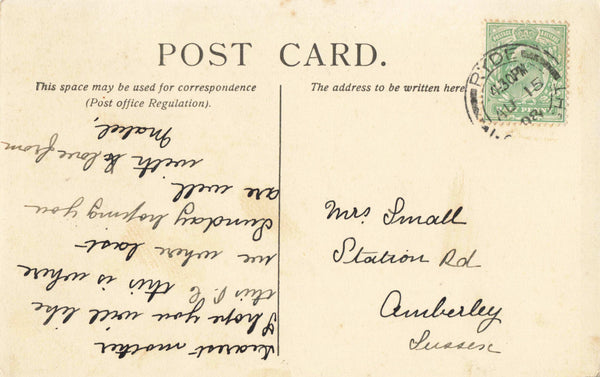 POST CARD.
This space may be used for correspondence
(Post office Regulation).
The address to be written here
RYDE
4.30PM
AU 15
08
Dearest mother
I hope you will like
this P.C this is where
we where last
Sunday hoping you
are well
with love from
Mabel,
Mrs Small
Station Rd
Amberley
Sussex